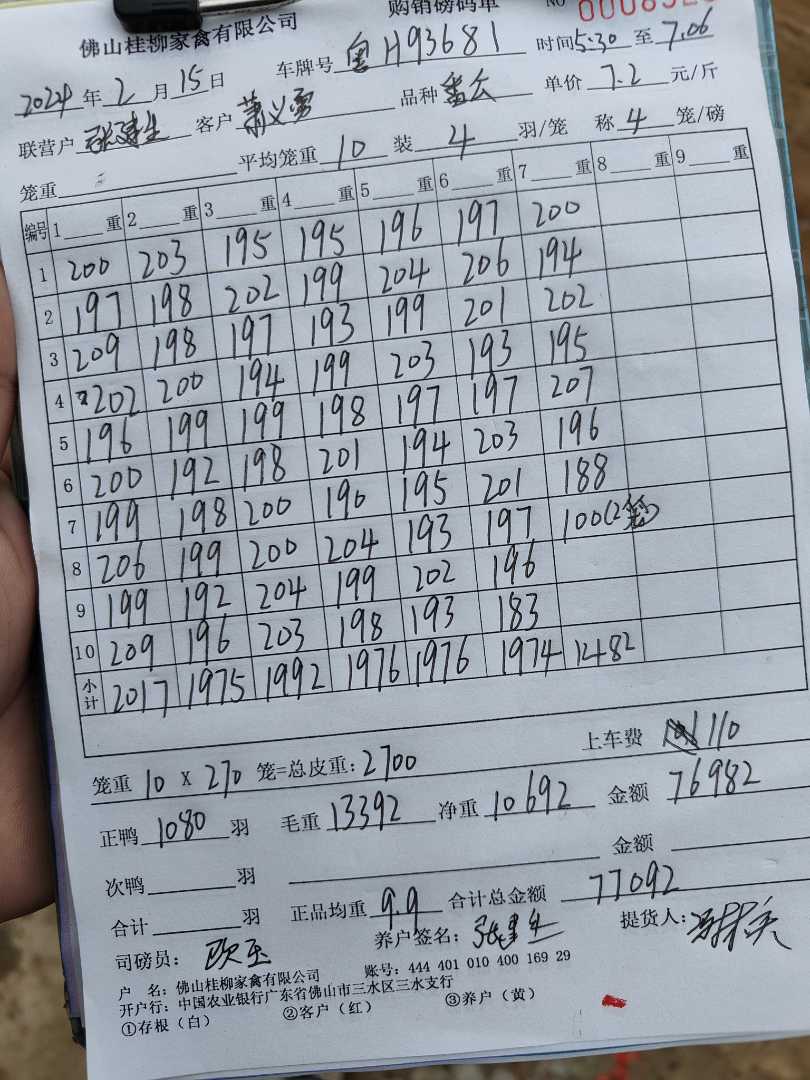 佛山桂柳家禽有限公司 购销磅码单 NO
2024年2月15日 车牌号 粤H93681 时间5:30至7.06
联营户 张建生 客户 萧义勇 品种 单价 7.2 元/斤
笼重 平均笼重 10 装 4 羽/笼 称 4 笼/磅
编号 1 重 2 重 3 重 4 重 5 重 6 重 7 重 8 重 9 重
1 200 203 195 195 196 197 200
2 197 198 202 199 204 206 194
3 209 198 197 193 199 201 202
4 202 200 194 199 203 193 195
5 196 199 199 198 197 197 207
6 200 192 198 201 194 203 196
7 199 198 200 190 195 201 188
8 206 199 200 204 193 197 100(2笼)
9 199 192 204 199 202 196
10 209 196 203 198 193 183
小计 2017 1975 1992 1976 1976 1974 1482
笼重 10 X 270 笼=总皮重: 2700 上车费 110
正鸭 1080 羽 毛重 13392 净重 10692 金额 76982
次鸭 羽 金额
合计 羽 正品均重 9.9 合计总金额 77092
司磅员: 养户签名: 张建生 提货人:
户 名: 佛山桂柳家禽有限公司 账号: 444 401 010 400 169 29
开户行: 中国农业银行广东省佛山市三水区三水支行
①存根(白) ②客户(红) ③养户(黄)